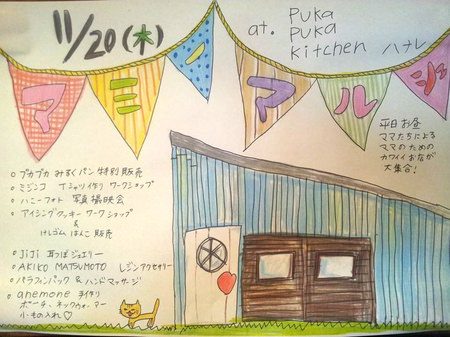 11/20(木)
at. Puka
Puka
Kitchen ハナレ
マミーノマルシェ
平日お昼
ママたちによる
ママのための
カワイイお店が
大集合!
○ プカプカ みるくパン 特別販売
○ ミジンコ Tシャツ作り ワークショップ
○ ハニーフォト 写真撮影会
○ アイシングクッキー ワークショップ
&
けしゴムはんこ 販売
○ JiJi 耳つぼジュエリー
○ AKIKO MATSUMOTO レジンアクセサリー
○ パラフィンパック & ハンドマッサージ
○ anemone 手作り
ポーチ、ネックウォーマー
小もの入れ♡